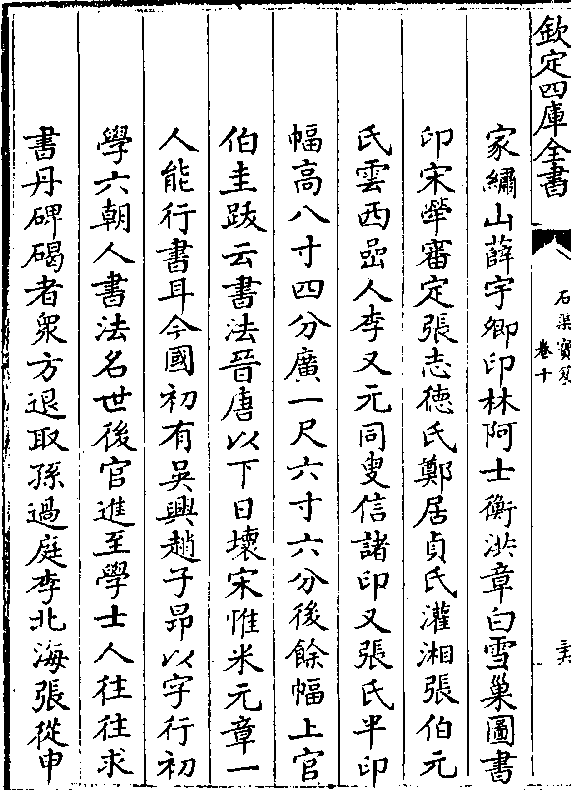 欽定四庫全書
石渠寶笈
卷十
家繡山薛宇卿印林阿士衡洪章白雪巢圖書
印宋犖審定張志徳氏鄭居貞氏灌湘張伯元
氏雲西嵒人李又元同叟信諸印又張氏半印
幅高八寸四分廣一尺六寸六分後餘幅上官
伯圭跋云書法晉唐以下日壞宋惟米元章一
人能行書耳今國初有吳興趙子昂以字行初
學六朝人書法名世後官進至學士人往往求
書丹碑碣者衆方退取孫過庭李北海張從申